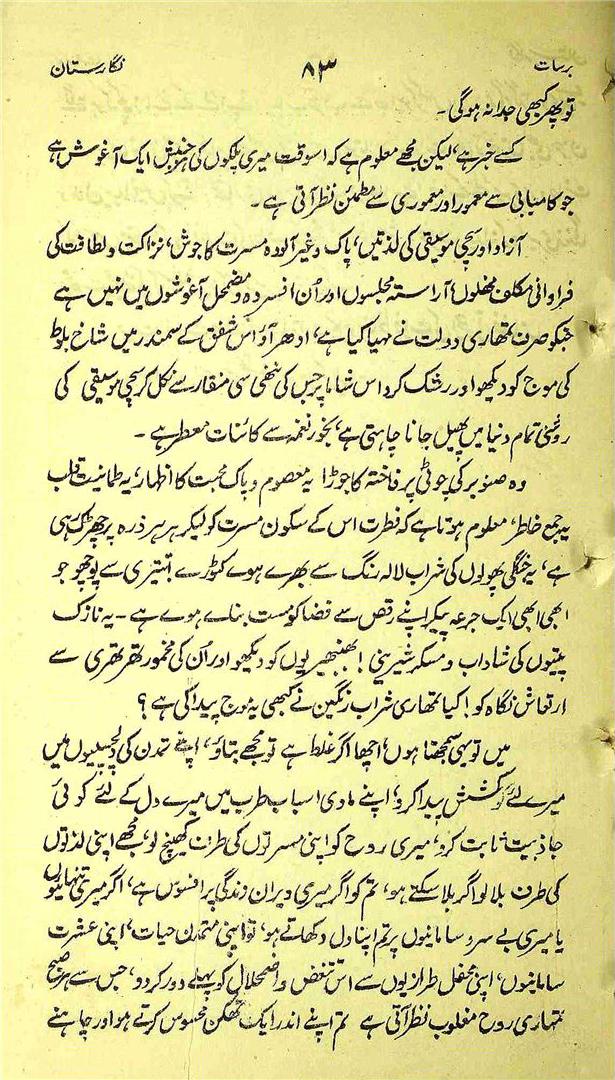 برسات ۸۳ نگارستان
تو پھر کبھی جدا نہ ہوگی۔
کسے خبر ہے، لیکن مجھے معلوم ہے کہ اسوقت میری پلکوں کی ہر جنبش ایک آغوش ہے
جو کامیابی سے معمور اور معموری سے مطمئن نظر آتی ہے۔
آزاد اور سچی موسیقی کی لذتیں، پاک وغیر آلودہ مسرت کا جوش، نزاکت و لطافت کی
فراوانی مکلف محفلوں، آراستہ مجلسوں اور اُن افسردہ و مضمحل آغوشوں میں نہیں ہے
جنکو صرف تمھاری دولت نے مہیا کیا ہے، ادھر آؤ اس شفق کے سمندر میں شاخ بلوط
کی موج کو دیکھو اور رشک کرد اس شاما پر جس کی ننھی سی منقار سے نکل کر سچی موسیقی کی
روشنی تمام دنیا میں پھیل جانا چاہتی ہے، بخور نغمہ سے کائنات معطر ہے۔
وہ صنوبر کی چوٹی پر فاختہ کا جوڑا یہ معصوم و پاک محبت کا اظہار، یہ طمانیت قلب
یہ جمع خاطر، معلوم ہوتا ہے کہ فطرت اس کے سکون مسرت کو لیکر ہر ہر ذرہ پر چھڑک رہی
ہے، یہ جنگلی پھولوں کی شراب لالہ رنگ سے بھرے ہوے کٹورے! تیتری سے پوچھو جو
ابھی ابھی ایک جرعہ پیکر اپنے رقص سے فضا کو مست بناے ہوے ہے۔ یہ نازک
پتیوں کی شاداب و مسکر شیرینی! بھنبھیریوں کو دیکھو اور اُن کی مخمور تھرتھری سے
ارتعاش نگاہ کو! کیا تمھاری شراب رنگین نے کبھی یہ موج پیدا کی ہے؟
میں تو یہی سمجھتا ہوں، اچھا اگر غلط ہے تو مجھے بتاؤ، اپنے تمدن کی دلچسپیوں میں
میرے لئے کوشش پیدا کرو، اپنے مادی اسباب طرب میں میرے دل کے لئے کوئی
جاذبیت ثابت کرو، میری روح کو اپنی مسرتوں کی طرف کھینچ لو، مجھے اپنی لذتوں
کی طرف بلا لو اگر بلا سکتے ہو، تم کو اگر میری ویران زندگی پر افسوس ہے، اگر میری تنہائیوں
یا میری بے سرو سامانیوں پر تم اپنا دل دکھاتے ہو، تو اپنی متمدن حیات، اپنی عشرت
سامانیوں، اپنی محفل طرازیوں سے اس تنغض و اضمحلال کو پہلے دور کردو، جس سے ہر صبح
تمہاری روح مغلوب نظر آتی ہے تم اپنے اندر ایک تھکن محسوس کرتے ہو اور چاہنے